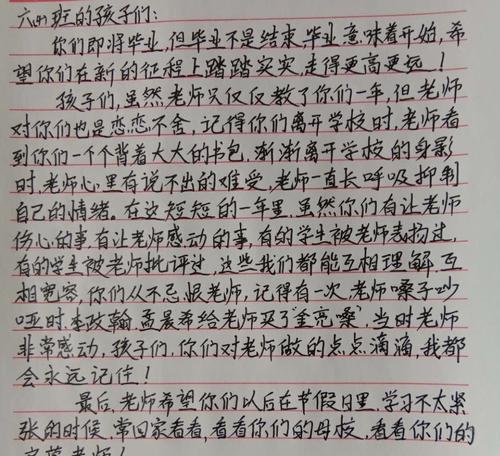 六(4)班的孩子们:
你们即将毕业,但毕业不是结束,毕业意味着开始,希
望你们在新的征程上踏踏实实,走得更高更远!
孩子们,虽然老师只仅仅教了你们一年,但老师
对你们也是恋恋不舍,记得你们离开学校时,老师看
到你们一个个背着大大的书包,渐渐离开学校的身影
时,老师心里有说不出的难受,老师一直长呼吸抑制
自己的情绪。在这短短的一年里,虽然你们有让老师
伤心的事,有让老师感动的事,有的学生被老师表扬过,
有的学生被老师批评过,这些我们都能互相理解,互
相宽容,你们从不忌恨老师,记得有一次,老师嗓子吵
哑时,李政翰,孟晨希给老师买了"金亮嗓",当时老师
非常感动,孩子们,你们对老师做的点点滴滴,我都
会永远记住!
最后,老师希望你们以后在节假日里,学习不太紧
张的时候,常回家看看,看看你们的母校,看看你们的
老师!